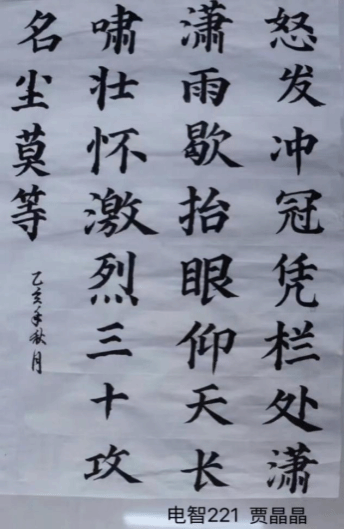 怒发冲冠凭栏处潇
潇雨歇抬眼仰天长
啸壮怀激烈三十攻
名尘莫等
乙亥年秋月
电智221 贾晶晶